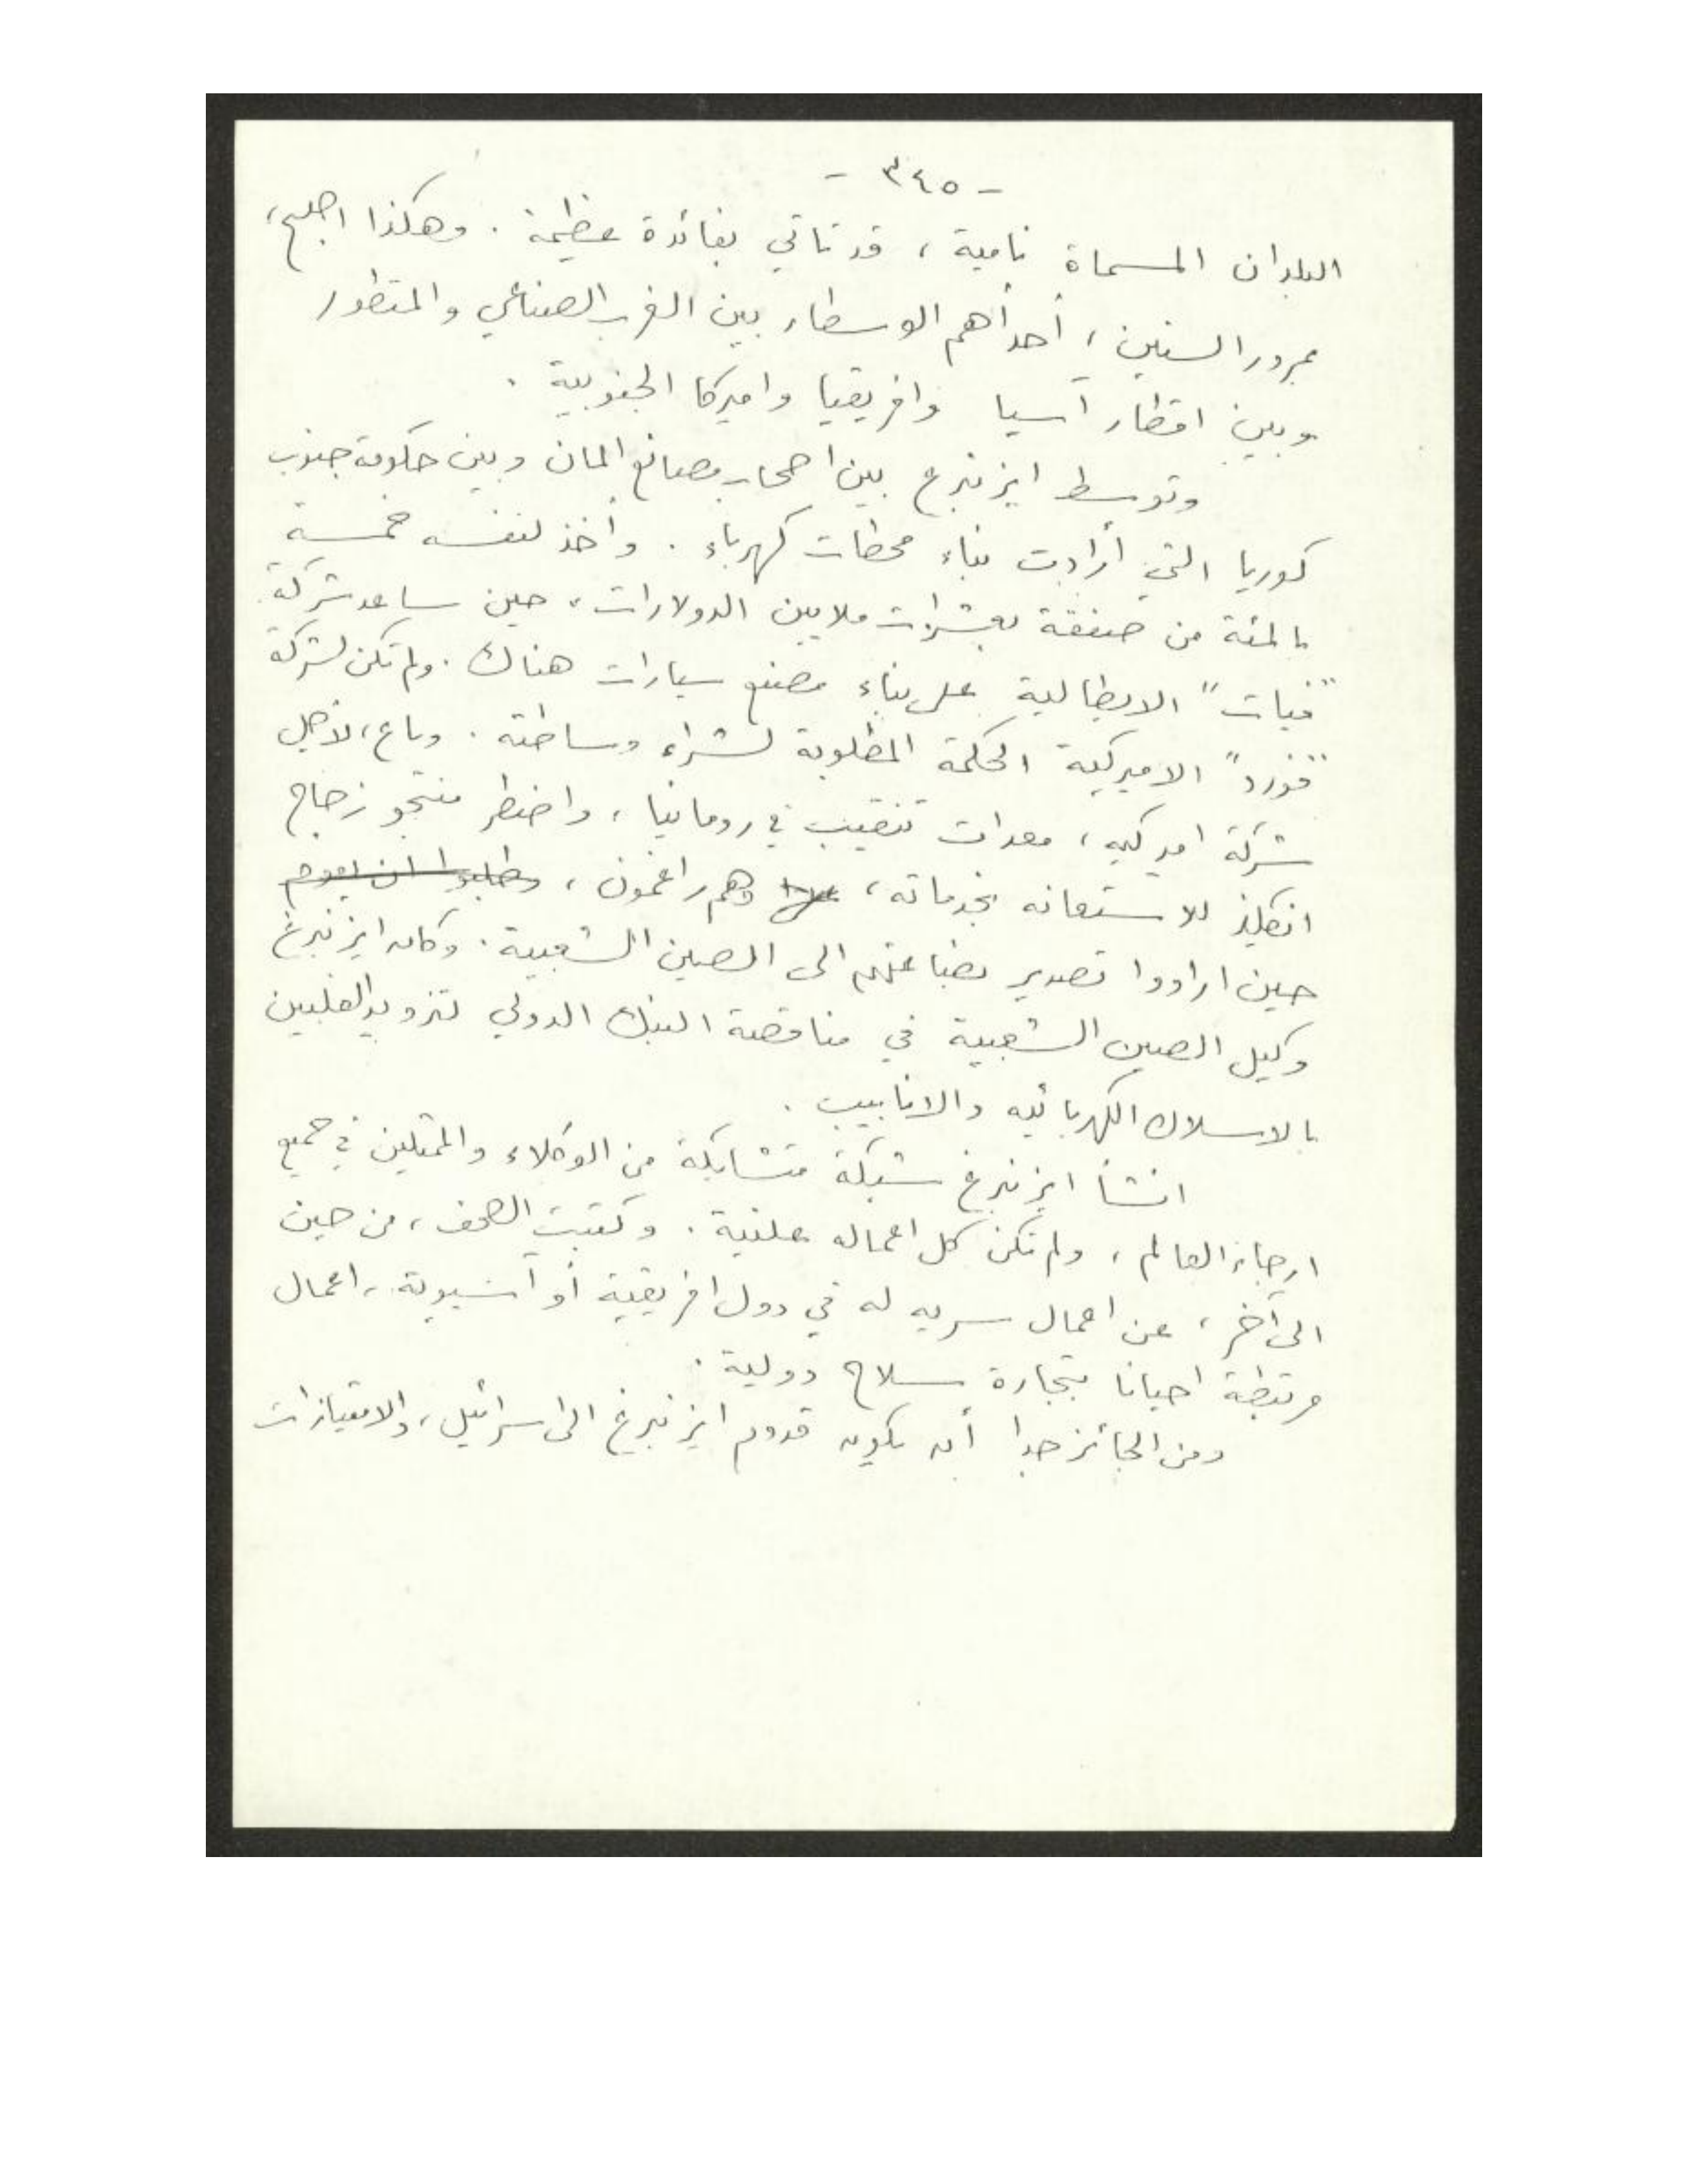 - ٣٤٥ -
البلدان المسماة نامية ، قد تاتي بفائدة عظيمة . وهكذا اصبح ،
بمرور السنين ، أحد أهم الوسطاء بين الغرب الصناعي والمتطور
وبين اقطار آسيا وافريقيا واميركا الجنوبية .
وتوسط ايزنبرغ بين اصحاب مصانع المان وبين حكومة جنوب
كوريا التي أرادت بناء محطات كهرباء . وأخذ لنفسه خمسة
بالمئة من صفقة بعشرات ملايين الدولارات ، حين ساعد شركة
"فيات" الايطالية على بناء مصنع سيارات هناك . ولم تكن لشركة
"فورد" الاميركية الحكمة المطلوبة لشراء وساطته . وباع ، لاجل
شركة اميركيه ، معدات تنقيب في رومانيا ، واضطر منتجو زجاج
انكليز للاستعانه بخدماته ، وهم راغمون ، وطلبوا ان يعودهم
حين ارادوا تصدير بضاعتهم الى الصين الشعبية . وكان ايزنبرغ
وكيل الصين الشعبية في مناقصة البنك الدولي لتزويد الفلبين
بالاسلاك الكهربائيه والانابيب .
انشأ ايزنبرغ شبكة متشابكة من الوكلاء والممثلين في جميع
ارجاء العالم ، ولم تكن كل اعماله علنية . وكتبت الصحف ، من حين
الى آخر ، عن اعمال سريه له في دول افريقية أو آسيوية ، اعمال
مرتبطة احيانا بتجارة سلاح دولية .
ومن الجائز جدا أن يكون قدوم ايزنبرغ الى اسرائيل ، والامتيازات